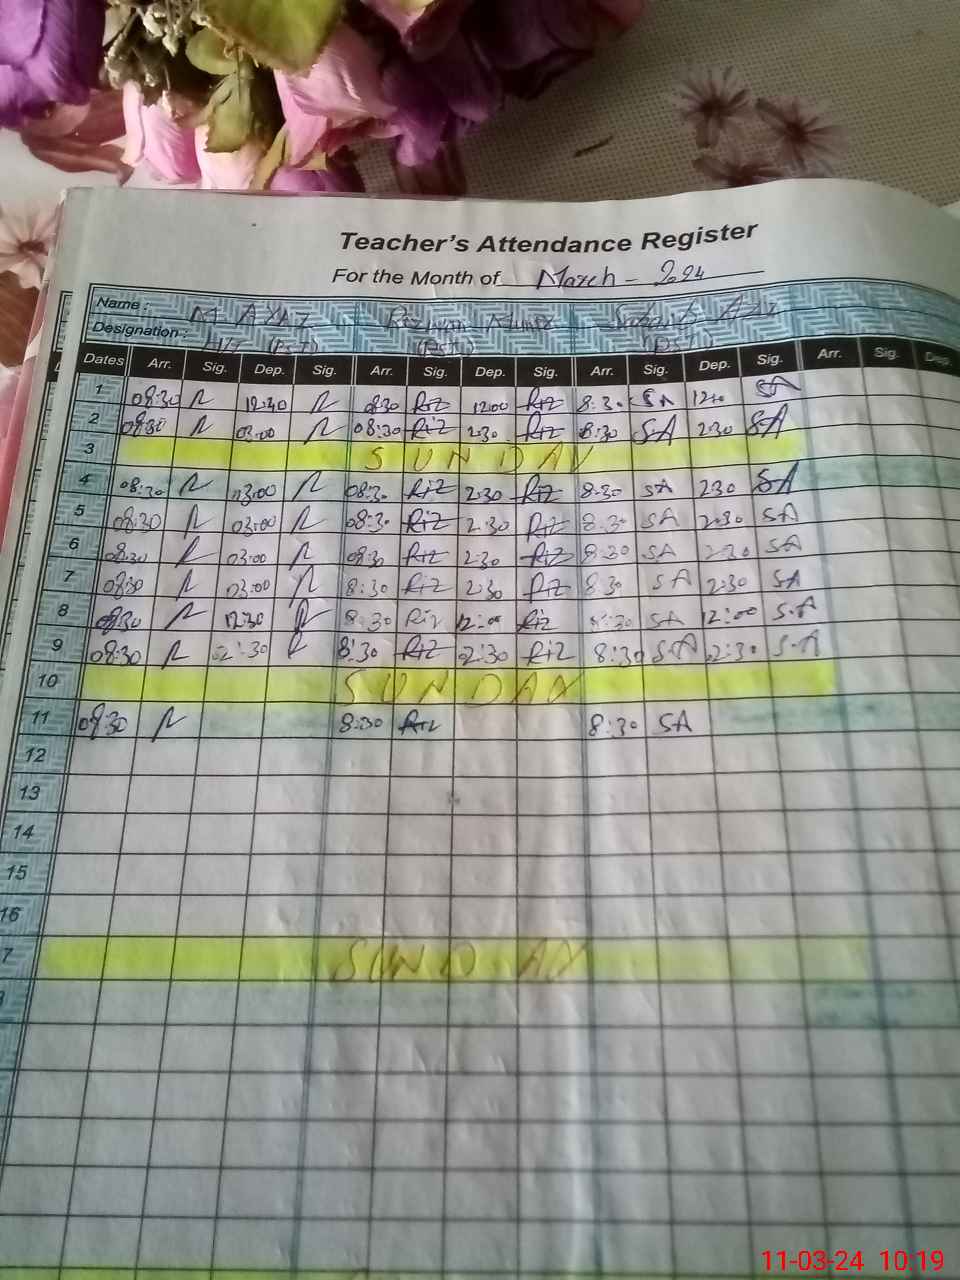 Teacher's Attendance Register
For the Month of March - 2024
Name: M AYAZ Rizwan
Designation: (PST) (PST) (PST)
Dates Arr. Sig. Dep. Sig. Arr. Sig. Dep. Sig. Arr. Sig. Dep. Sig. Arr. Sig. Dep.
1 08:30 12:30 8:30 Riz 12:00 Riz 8:30 SA SA
2 08:30 03:00 08:30 Riz 2:30 Riz 8:30 SA 2:30 SA
3 SUNDAY
4 08:30 03:00 08:30 Riz 2:30 Riz 8:30 SA 2:30 SA
5 08:30 03:00 08:30 Riz 2:30 Riz 8:30 SA 2:30 SA
6 08:30 03:00 08:30 Riz 2:30 Riz 8:30 SA 2:30 SA
7 08:30 03:00 8:30 Riz 2:30 Riz 8:30 SA 2:30 SA
8 08:30 12:30 8:30 Riz 12:00 Riz 8:30 SA 12:00 S.A
9 08:30 02:30 8:30 Riz 2:30 Riz 8:30 S.A 2:30 S.A
10 SUNDAY
11 08:30 8:30 Riz 8:30 SA
12
13
14
15
16
7 SUNDAY
11-03-24 10:19